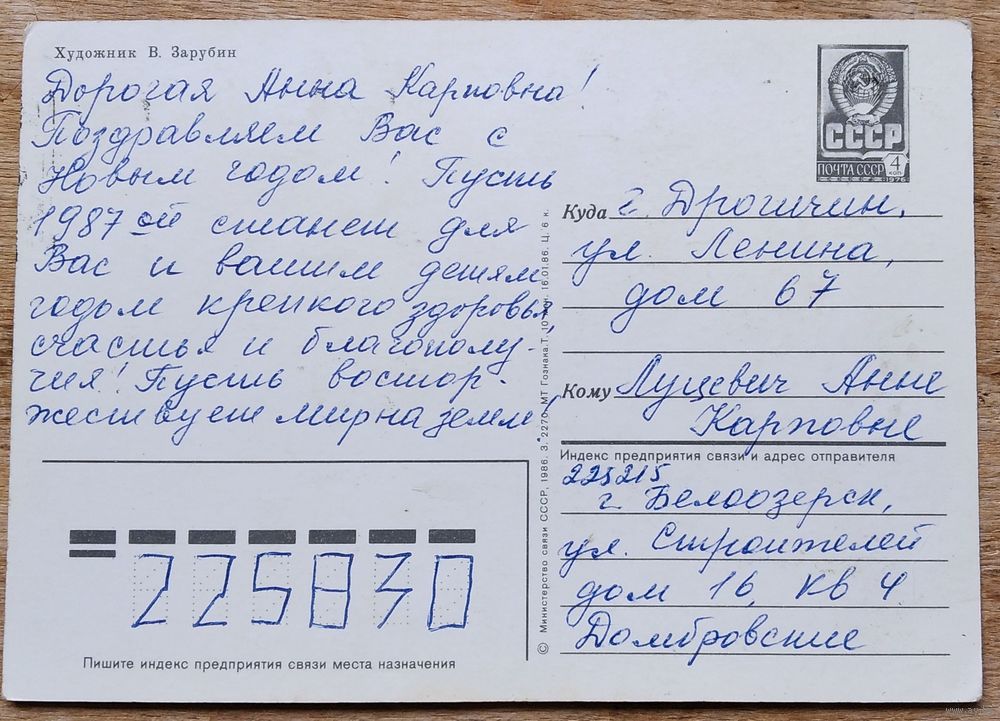 Художник В. Зарубин
Дорогая Анна Карповна!
Поздравляем Вас с
Новым годом! Пусть
1987ой станет для
Вас и вашим детям
годом крепкого здоровья,
счастья и благополу-
чия! Пусть востор-
жествует мир на земле!
СССР
ПОЧТА СССР
4
коп
1976
Куда г. Дрогичин,
ул. Ленина,
дом 67
Кому Луцевич Анне
Карповне
Индекс предприятия связи и адрес отправителя
225215
г. Белоозерск,
ул. Строителей
дом 16, кв 4
Домбровские
225830
Пишите индекс предприятия связи места назначения
© Министерство связи СССР, 1986. З. 2270. МТ Гознака. Т. 16.01.86. Ц. 6 к.